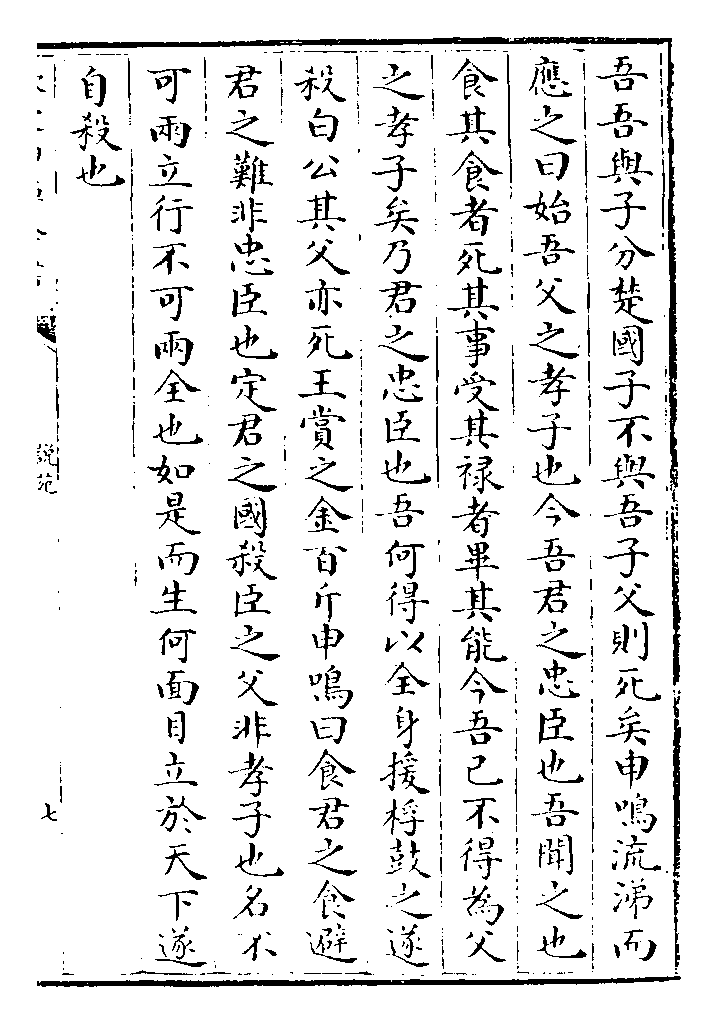 吾吾與子分楚國子不與吾子父則死矣申鳴流涕而
應之曰始吾父之孝子也今吾君之忠臣也吾聞之也
食其食者死其事受其禄者畢其能今吾已不得為父
之孝子矣乃君之忠臣也吾何得以全身援桴鼓之遂
殺白公其父亦死王賞之金百斤申鳴曰食君之食避
君之難非忠臣也定君之國殺臣之父非孝子也名不
可兩立行不可兩全也如是而生何面目立於天下遂
自殺也
說苑
七